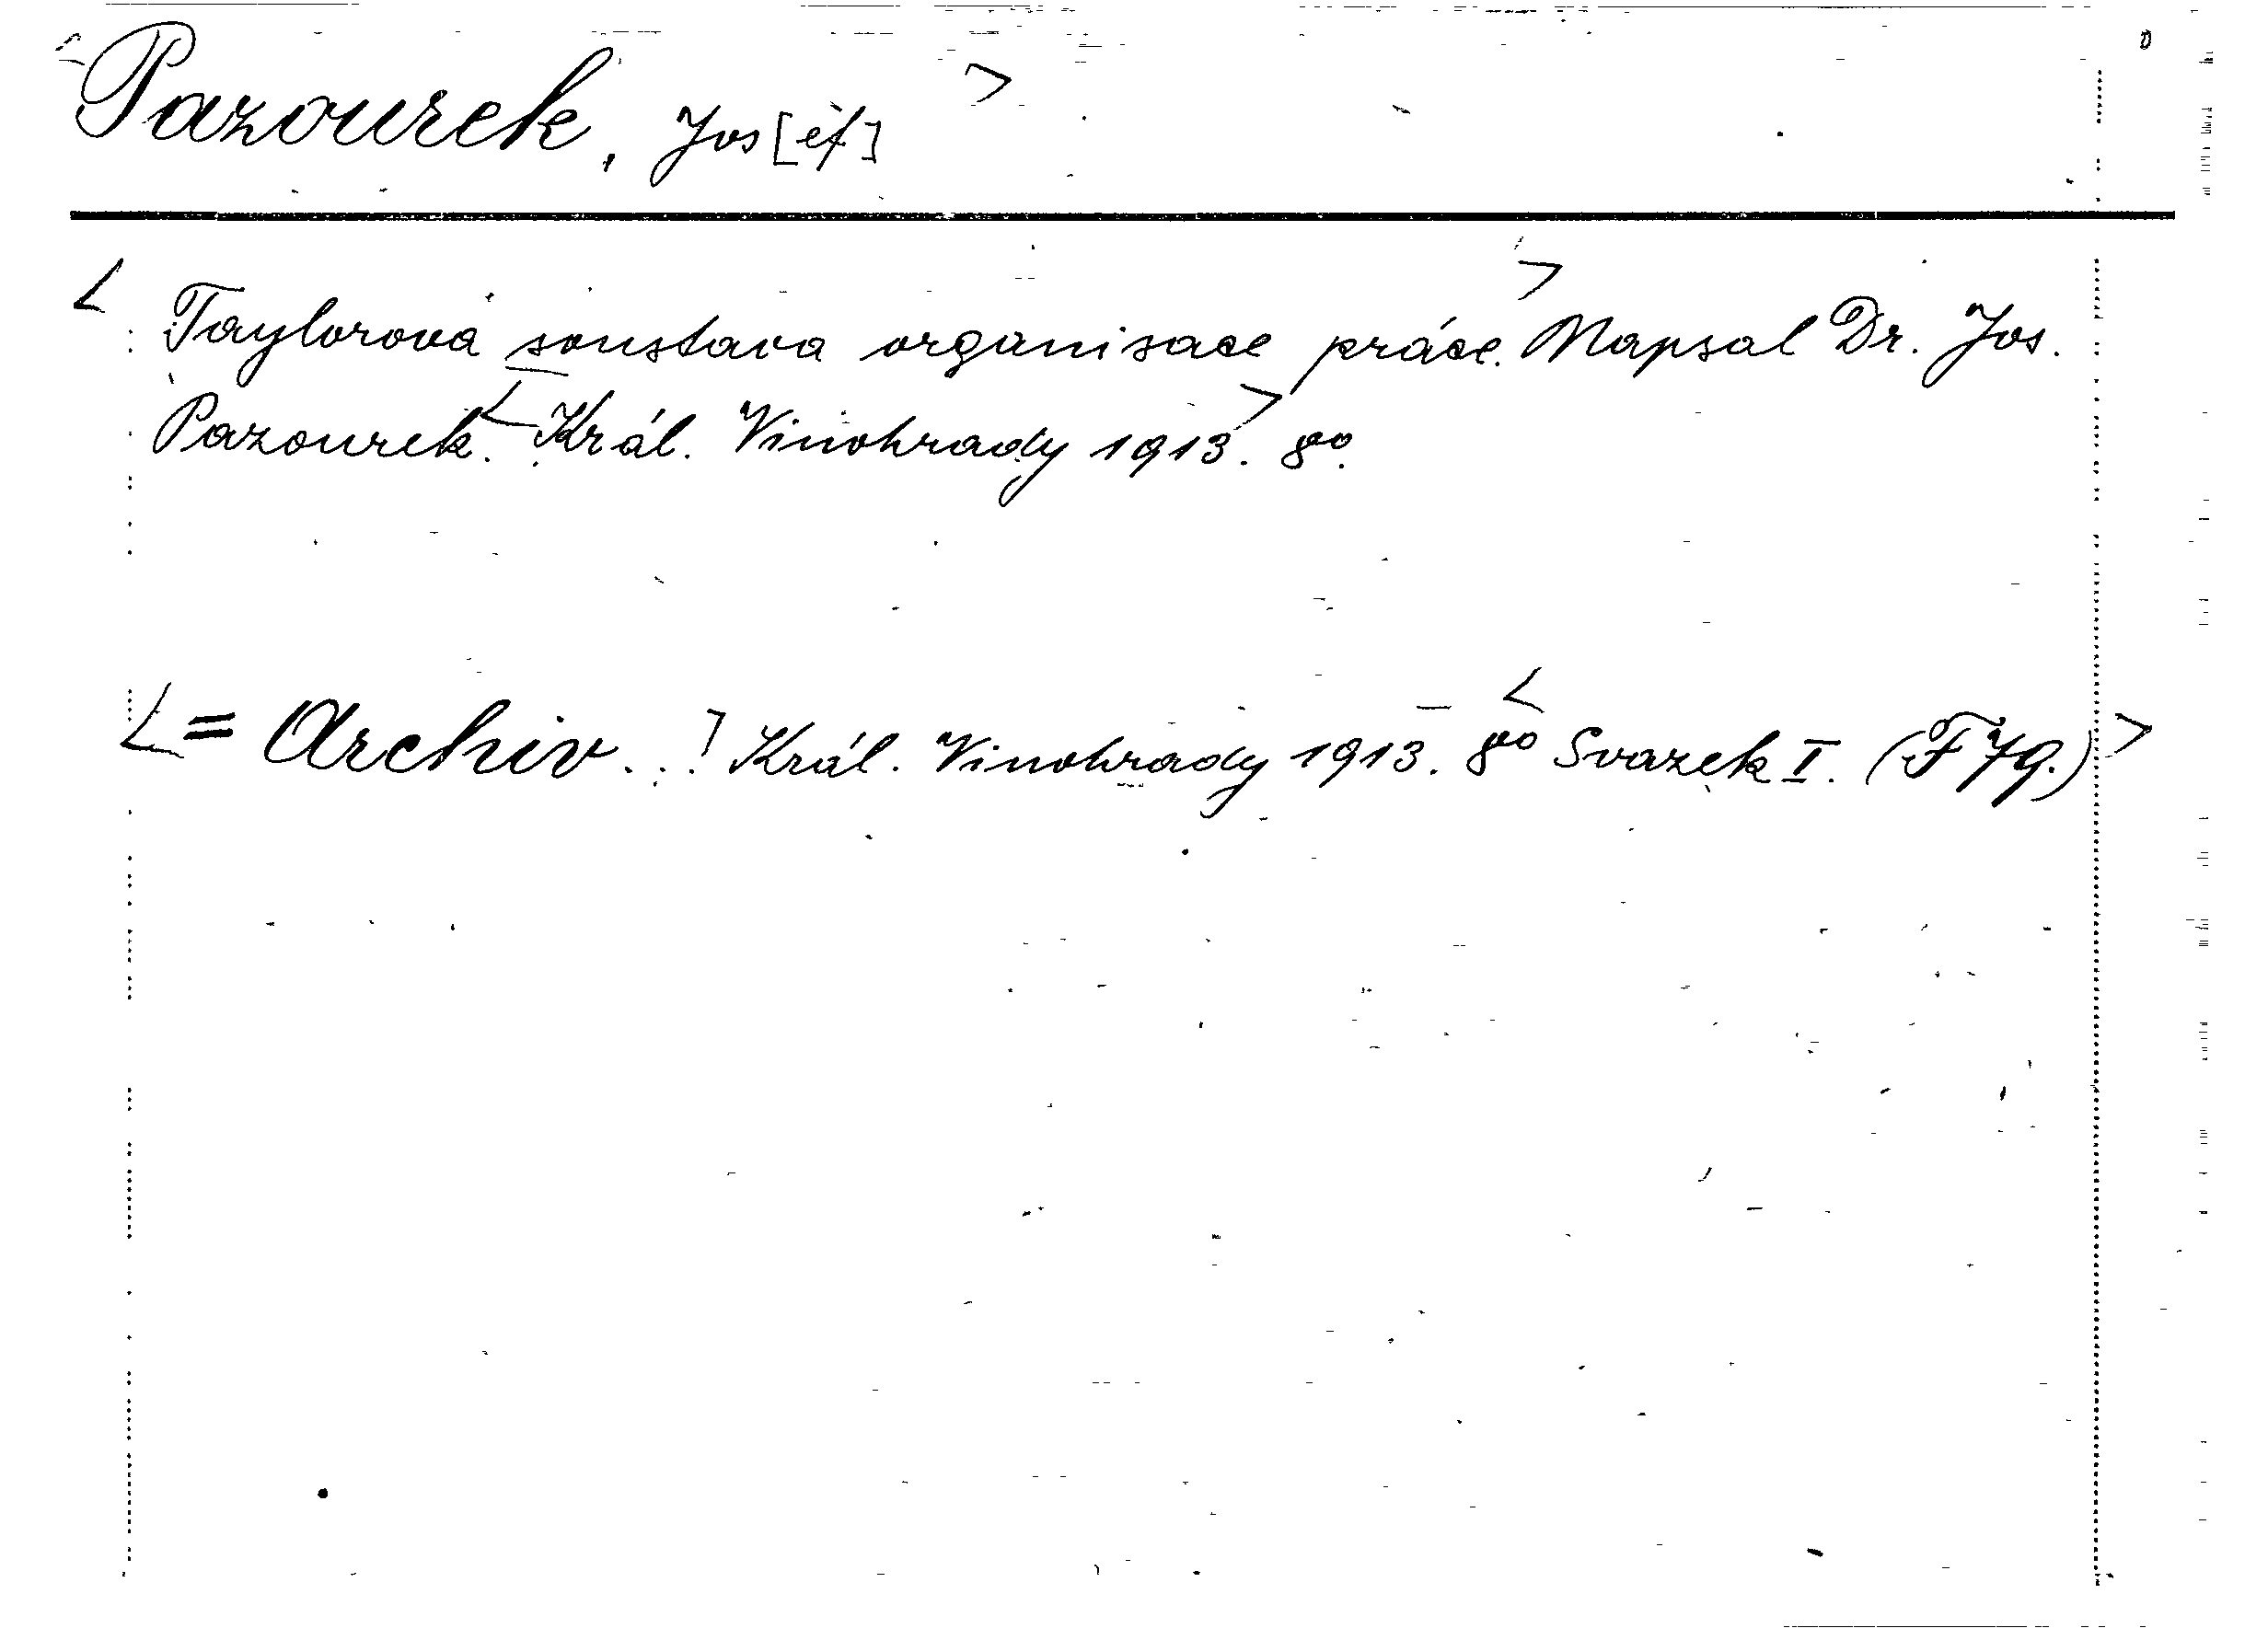 Pazourek, Jos[ef]
Taylorova soustava organisace práce. Napsal Dr. Jos.
Pazourek. Král. Vinohrady 1913. 8°.
= Archiv...! Král. Vinohrady 1913. 8° Svazek I. (F 79.)